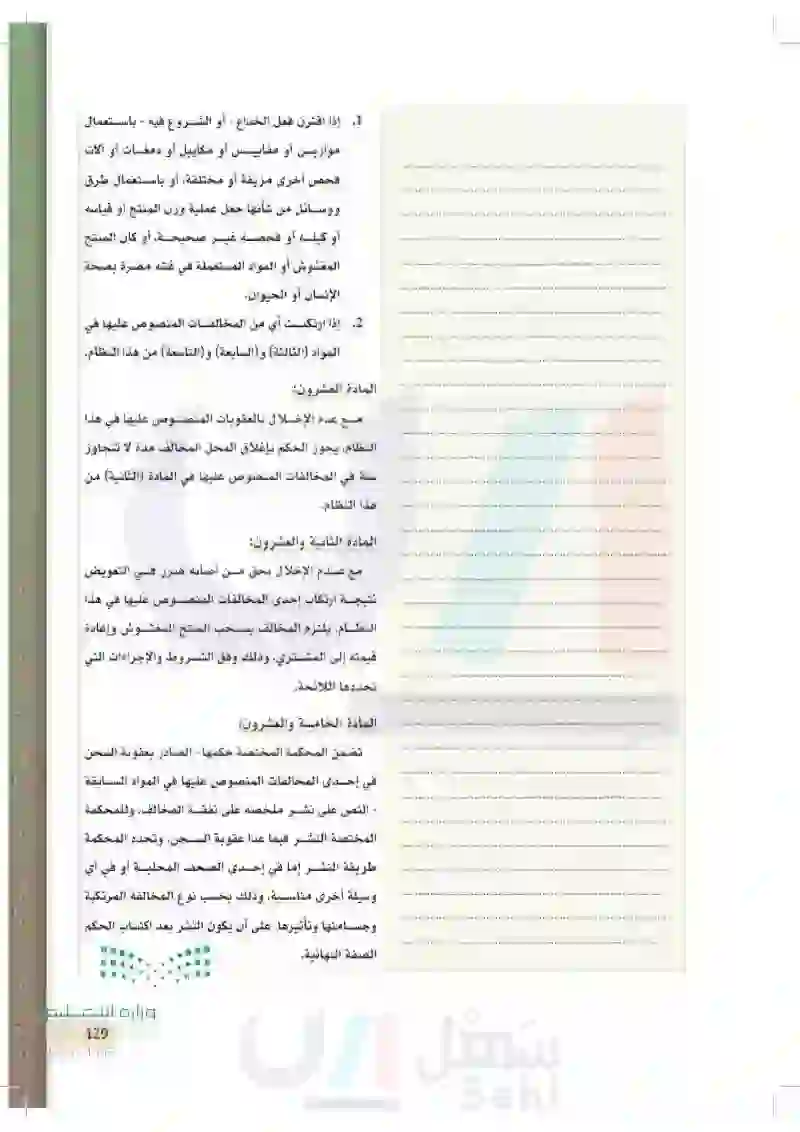 1. إذا اقترن فعل الخداع - أو الشروع فيه - باستعمال
موازين أو مقاييس أو مكاييل أو دمغات أو آلات
فحص أخرى مزيفة أو مختلفة، أو باستعمال طرق
ووسائل من شأنها جعل عملية وزن المنتج أو قياسه
أو كيله أو فحصه غير صحيحة، أو كان المنتج
المغشوش أو المواد المستعملة في غشه مضرة بصحة
الإنسان أو الحيوان.
2. إذا ارتكبت أي من المخالفات المنصوص عليها في
المواد (الثالثة) و(السابعة) و(التاسعة) من هذا النظام.
المادة العشرون:
مع عدم الإخلال بالعقوبات المنصوص عليها في هذا
النظام، يجوز الحكم بإغلاق المحل المخالف مدة لا تتجاوز
سنة في المخالفات المنصوص عليها في المادة (الثانية) من
هذا النظام.
المادة الثانية والعشرون:
مع عدم الإخلال بحق من أصابه ضرر في التعويض
نتيجة ارتكاب إحدى المخالفات المنصوص عليها في هذا
النظام، يلتزم المخالف بسحب المنتج المغشوش وإعادة
قيمته إلى المشتري، وذلك وفق الشروط والإجراءات التي
تحددها اللائحة.
المادة الخامسة والعشرون:
تضمن المحكمة المختصة حكمها - الصادر بعقوبة السجن
في إحدى المخالفات المنصوص عليها في المواد السابقة
- النص على نشر ملخصه على نفقة المخالف، وللمحكمة
المختصة النشر فيما عدا عقوبة السجن، وتحدد المحكمة
طريقة النشر إما في إحدى الصحف المحلية أو في أي
وسيلة أخرى مناسبة، وذلك بحسب نوع المخالفة المرتكبة
وجسامتها وتأثيرها، على أن يكون النشر بعد اكتساب الحكم
الصفة النهائية.
وزارة التعليم
129
سهل
Sahl